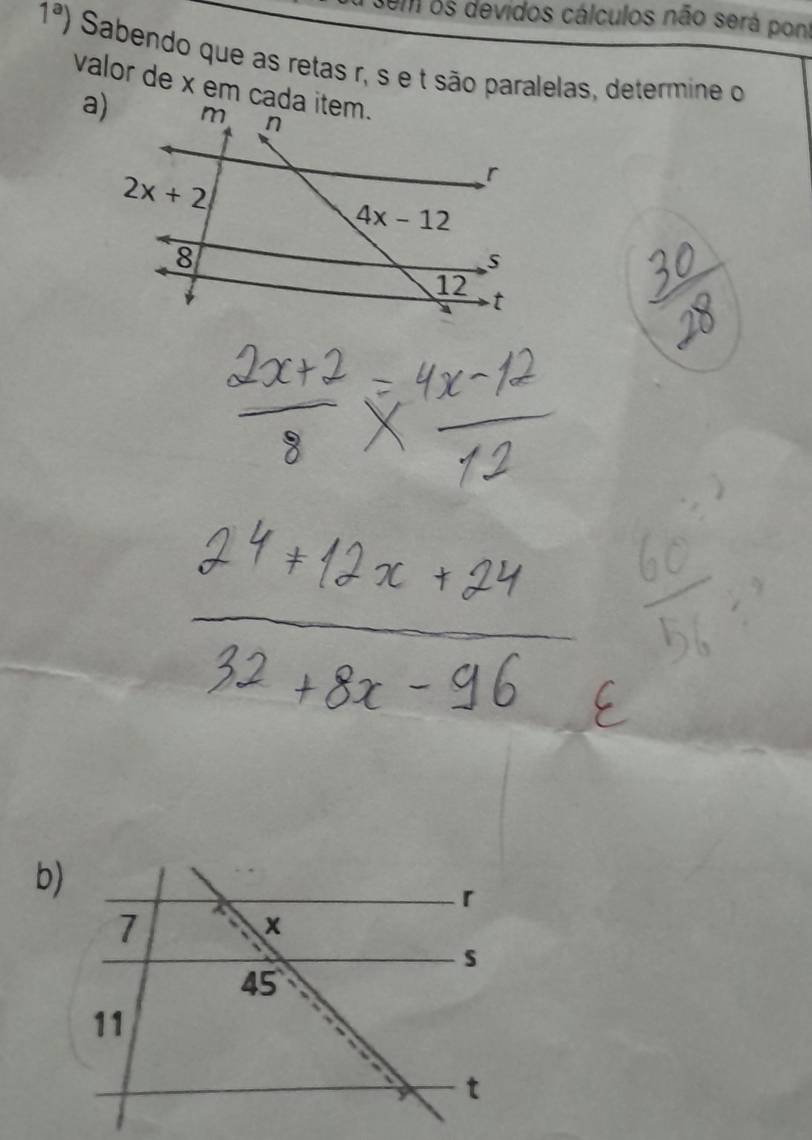 sem os devidos cálculos não será
1ª) Sabendo que as retas r, s e t são paralelas, determine o
valor de x em cada item.
a)
m n
r
2x + 2
4x – 12
8
s
12
t
30/28
2x+2/8 = 4x-12/12
X
24 + 12x + 24
32 + 8x - 96
60/56
b)
r
7
x
s
45
11
t